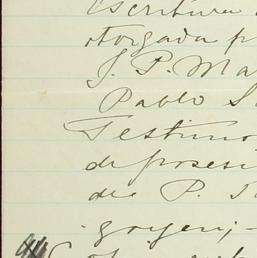 Escritura
otorgada p
J. P. Ma
Pablo S
Testimo
de posesi
de P. 
goyen;